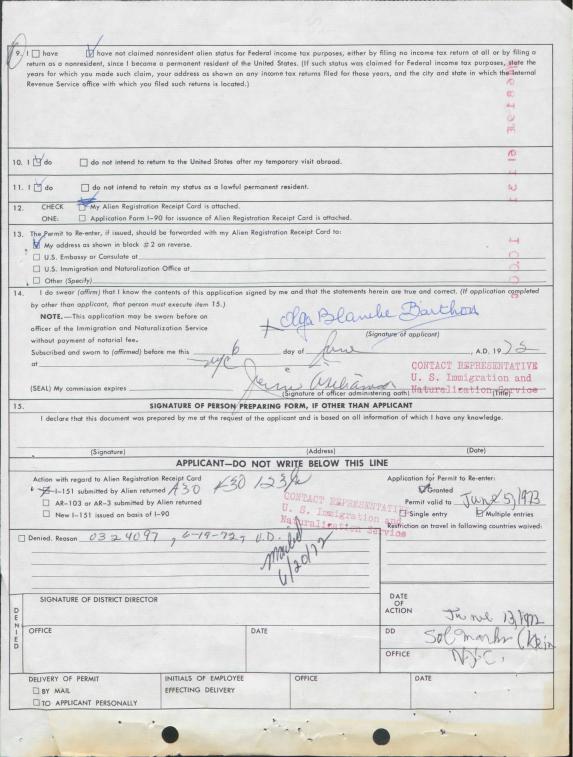 9. I ☐ have ☑ have not claimed nonresident alien status for Federal income tax purposes, either by filing no income tax return at all or by filing a
return as a nonresident, since I became a permanent resident of the United States. (If such status was claimed for Federal income tax purposes, state the
years for which you made such claim, your address as shown on any income tax returns filed for those years, and the city and state in which the Internal
Revenue Service office with which you filed such returns is located.)
10. I ☑ do ☐ do not intend to return to the United States after my temporary visit abroad.
11. I ☑ do ☐ do not intend to retain my status as a lawful permanent resident.
12. CHECK ☑ My Alien Registration Receipt Card is attached.
ONE: ☐ Application Form I-90 for issuance of Alien Registration Receipt Card is attached.
13. The Permit to Re-enter, if issued, should be forwarded with my Alien Registration Receipt Card to:
☑ My address as shown in block #2 on reverse.
☐ U.S. Embassy or Consulate at
☐ U.S. Immigration and Naturalization Office at
☐ Other (Specify)
14. I do swear (affirm) that I know the contents of this application signed by me and that the statements herein are true and correct. (If application completed
by other than applicant, that person must execute item 15.)
NOTE.—This application may be sworn before an
officer of the Immigration and Naturalization Service
without payment of notarial fee.
Olga Blanche Barthos
(Signature of applicant)
Subscribed and sworn to (affirmed) before me this 6 day of June, A.D. 1972
at NYC
CONTACT REPRESENTATIVE
U. S. Immigration and
Naturalization Service
(SEAL) My commission expires
(Signature of officer administering oath) (Title)
15. SIGNATURE OF PERSON PREPARING FORM, IF OTHER THAN APPLICANT
I declare that this document was prepared by me at the request of the applicant and is based on all information of which I have any knowledge.
(Signature) (Address) (Date)
APPLICANT—DO NOT WRITE BELOW THIS LINE
Action with regard to Alien Registration Receipt Card
I-151 submitted by Alien returned A30
☐ AR-103 or AR-3 submitted by Alien returned
☐ New I-151 issued on basis of I-90
CONTACT REPRESENTATIVE
U. S. Immigration and
Naturalization Service
Application for Permit to Re-enter:
☑ Granted
Permit valid to June 5, 1973
☐ Single entry ☑ Multiple entries
Restriction on travel in following countries waived:
☐ Denied. Reason 0324097, 6-19-72, U.D.
Mailed
6/20/72
DENIED
SIGNATURE OF DISTRICT DIRECTOR
OFFICE DATE
DATE
OF
ACTION June 13, 1972
DD Sol Marks
OFFICE N.Y.C.
DELIVERY OF PERMIT
☐ BY MAIL
☐ TO APPLICANT PERSONALLY
INITIALS OF EMPLOYEE
EFFECTING DELIVERY
OFFICE
DATE